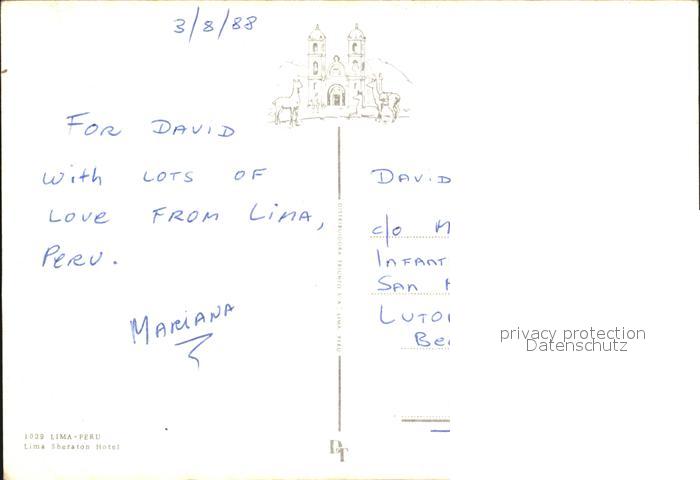 3/8/88
FOR DAVID
with LOTS OF
LOVE FROM LIMA,
PERU.
MARIANA
1029 LIMA-PERU
Lima Sheraton Hotel
DISTRIBUIDORA TRIUNFO S.A. LIMA PERU
DT
DAVID
c/o M
INFANT
SAN
LUTO
BE
privacy protection
Datenschutz